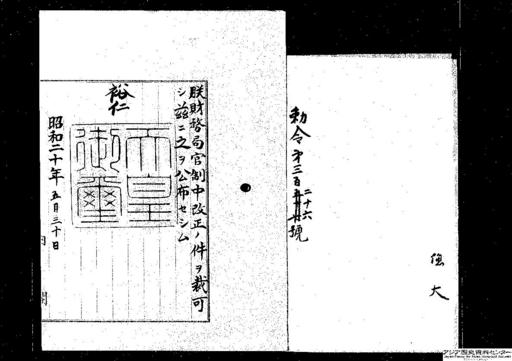 勅令第三百二十六號
朕財務局官制中改正ノ件ヲ裁可
シ茲ニ之ヲ公布セシム
裕仁
天皇御璽
昭和二十年五月三十日
内閣
アジア歴史資料センター